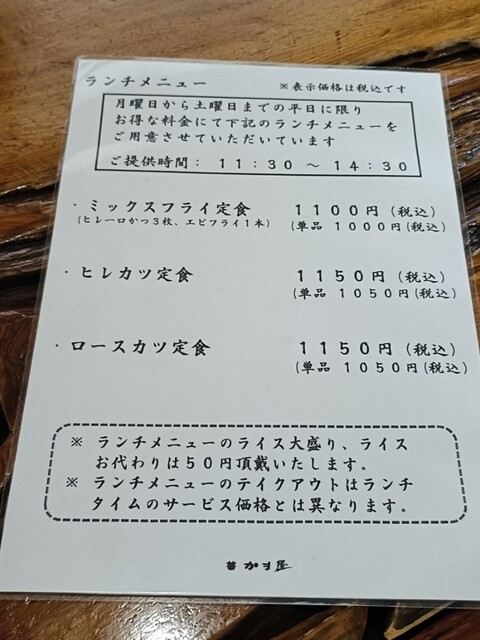 ランチメニュー　※表示価格は税込です
月曜日から土曜日までの平日に限り
お得な料金にて下記のランチメニューを
ご用意させていただいています
ご提供時間：　１１：３０　～　１４：３０
・ミックスフライ定食　１１００円（税込）
（ヒレ一口かつ３枚、エビフライ１本）　（単品　１０００円（税込）
・ヒレカツ定食　１１５０円（税込）
（単品　１０５０円（税込）
・ロースカツ定食　１１５０円（税込）
（単品　１０５０円（税込）
※　ランチメニューのライス大盛り、ライス
お代わりは５０円頂戴いたします。
※　ランチメニューのテイクアウトはランチ
タイムのサービス価格とは異なります。